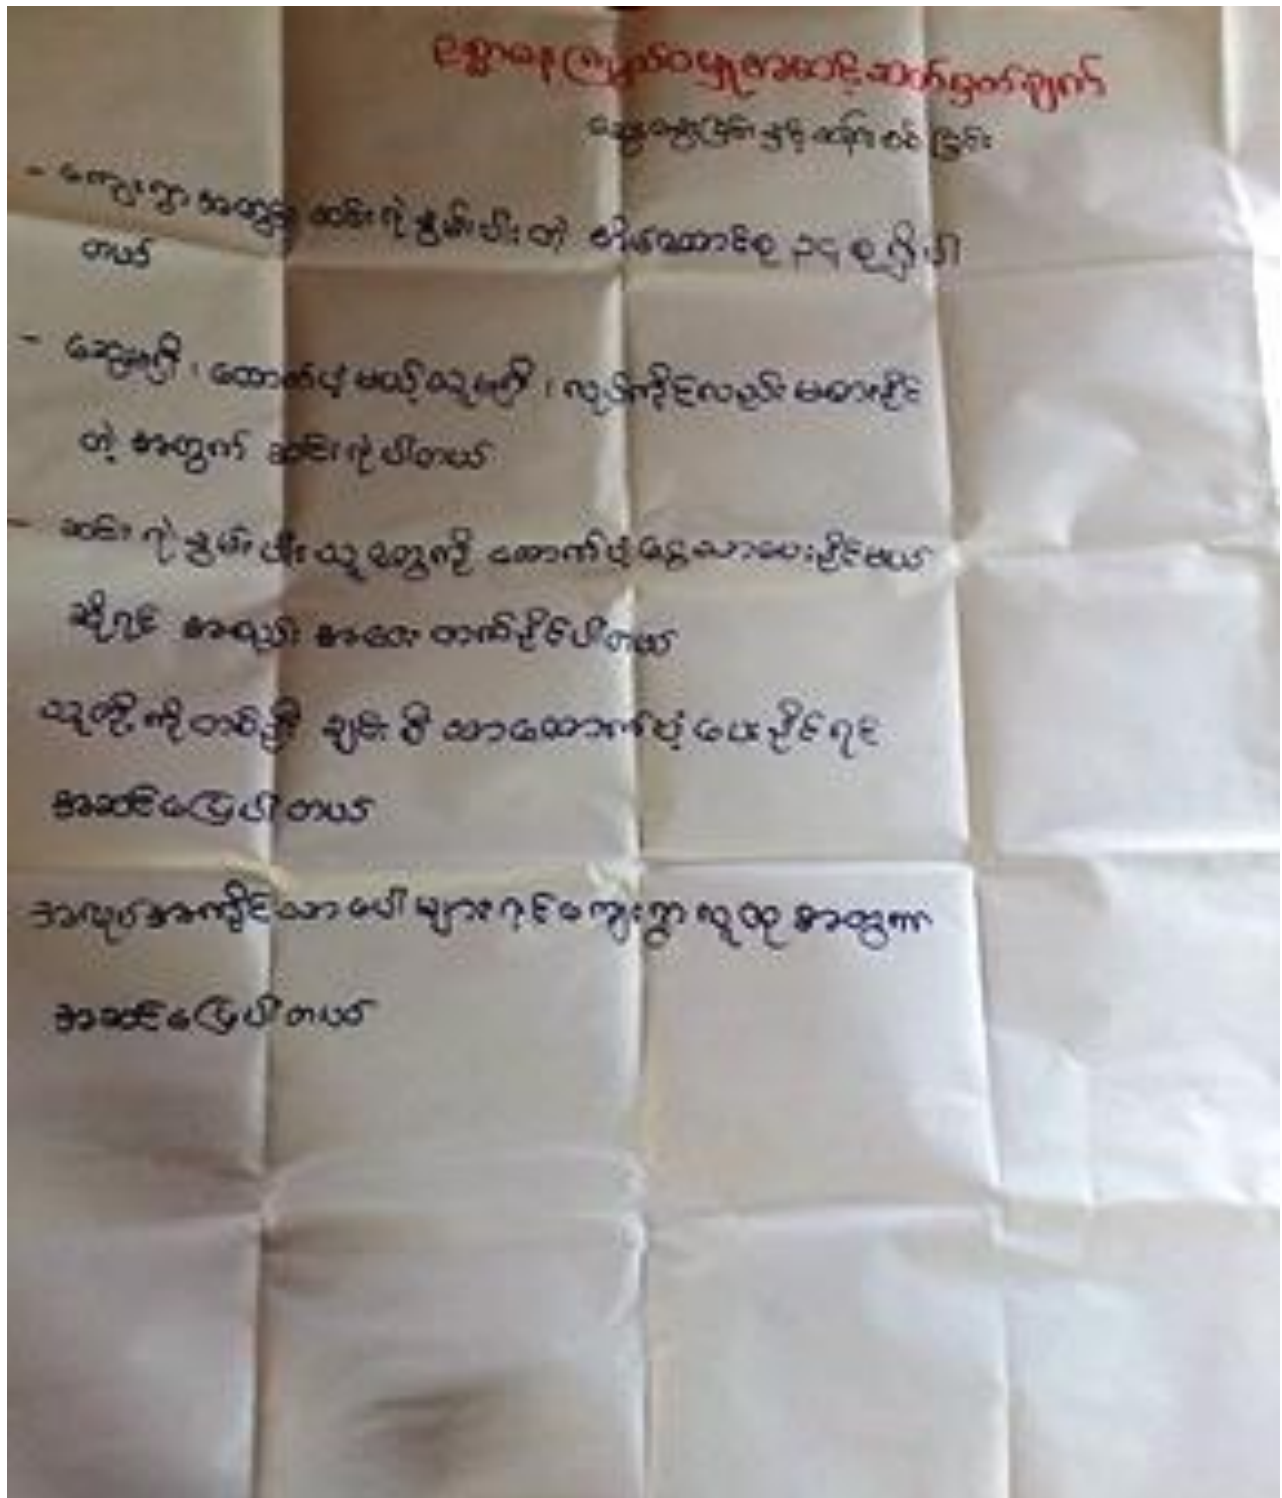 ဥစ္စာဓနကြွယ်ဝမှုအဆင့်သတ်မှတ်ချက်
ဆွေးနွေးခြင်းနှင့် ဆန်းစစ်ခြင်း
- ကျေးရွာအတွင်း ဆင်းရဲနွမ်းပါးတဲ့ အိမ်ထောင်စု ၃၄ စု ရှိပါ
တယ်
- ဆွေမရှိ ၊ ထောက်ပံ့မယ့်သူမရှိ ၊ လုပ်ကိုင်လည်းမစားနိုင်
တဲ့ အတွက် ဆင်းရဲပါတယ်
- ဆင်းရဲနွမ်းပါးသူတွေကို ထောက်ပံ့ငွေသာပေးနိုင်မယ်
ဆိုရင် အရည်အသွေးတက်နိုင်ပါတယ်
သူတို့ကိုတစ်ဦးချင်းစီသာထောက်ပံ့ပေးနိုင်ရင်
အဆင်ပြေပါတယ်
အလုပ်အကိုင်သာပေါများရင်ကျေးရွာလူထုအတွက်
အဆင်ပြေပါတယ်